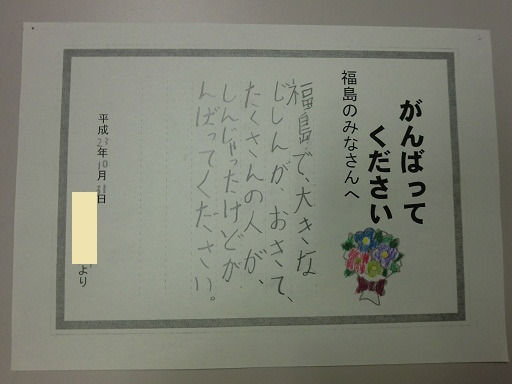 がんばって
ください
福島のみなさんへ
福島で、大きな
じしんが、おきて、
たくさんの人が、
しんじゃったけどが
んばってください。
平成23年10月日
より